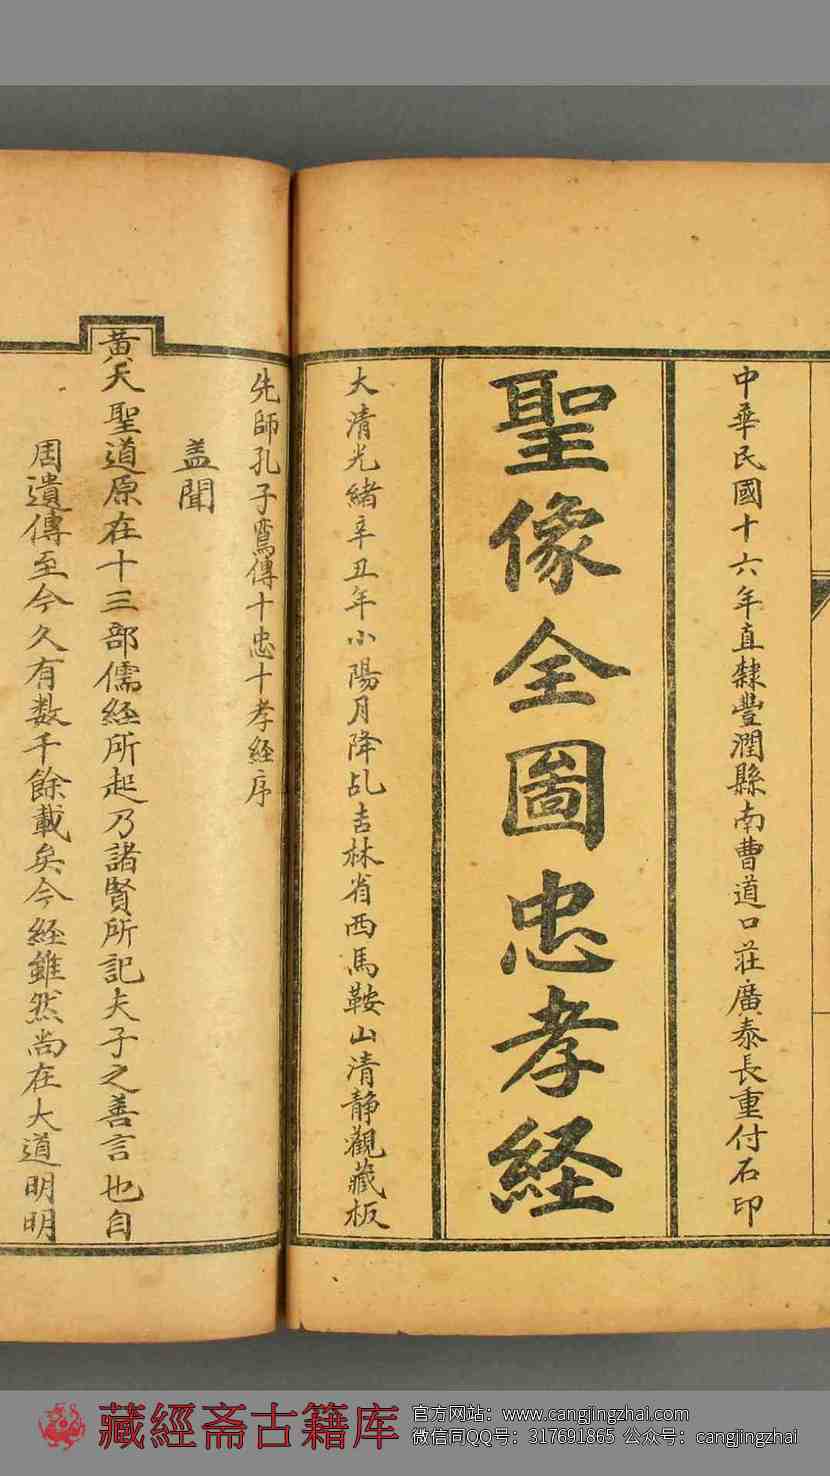 中華民國十六年直隸豐潤縣南曹道口莊廣泰長重付石印
聖像全圖忠孝経
大清光緒辛丑年小陽月降乩吉林省西馬鞍山清靜觀藏板
先師孔子鸞傳十忠十孝経序
盖聞
黄天聖道原在十三部儒経所起乃諸賢所記夫子之善言也自
周遺傳至今久有数千餘載矣今経雖然尚在大道明明
藏經斋古籍库
官方网站：www.cangjingzhai.com
微信同QQ号：317691865 公众号：cangjingzhai